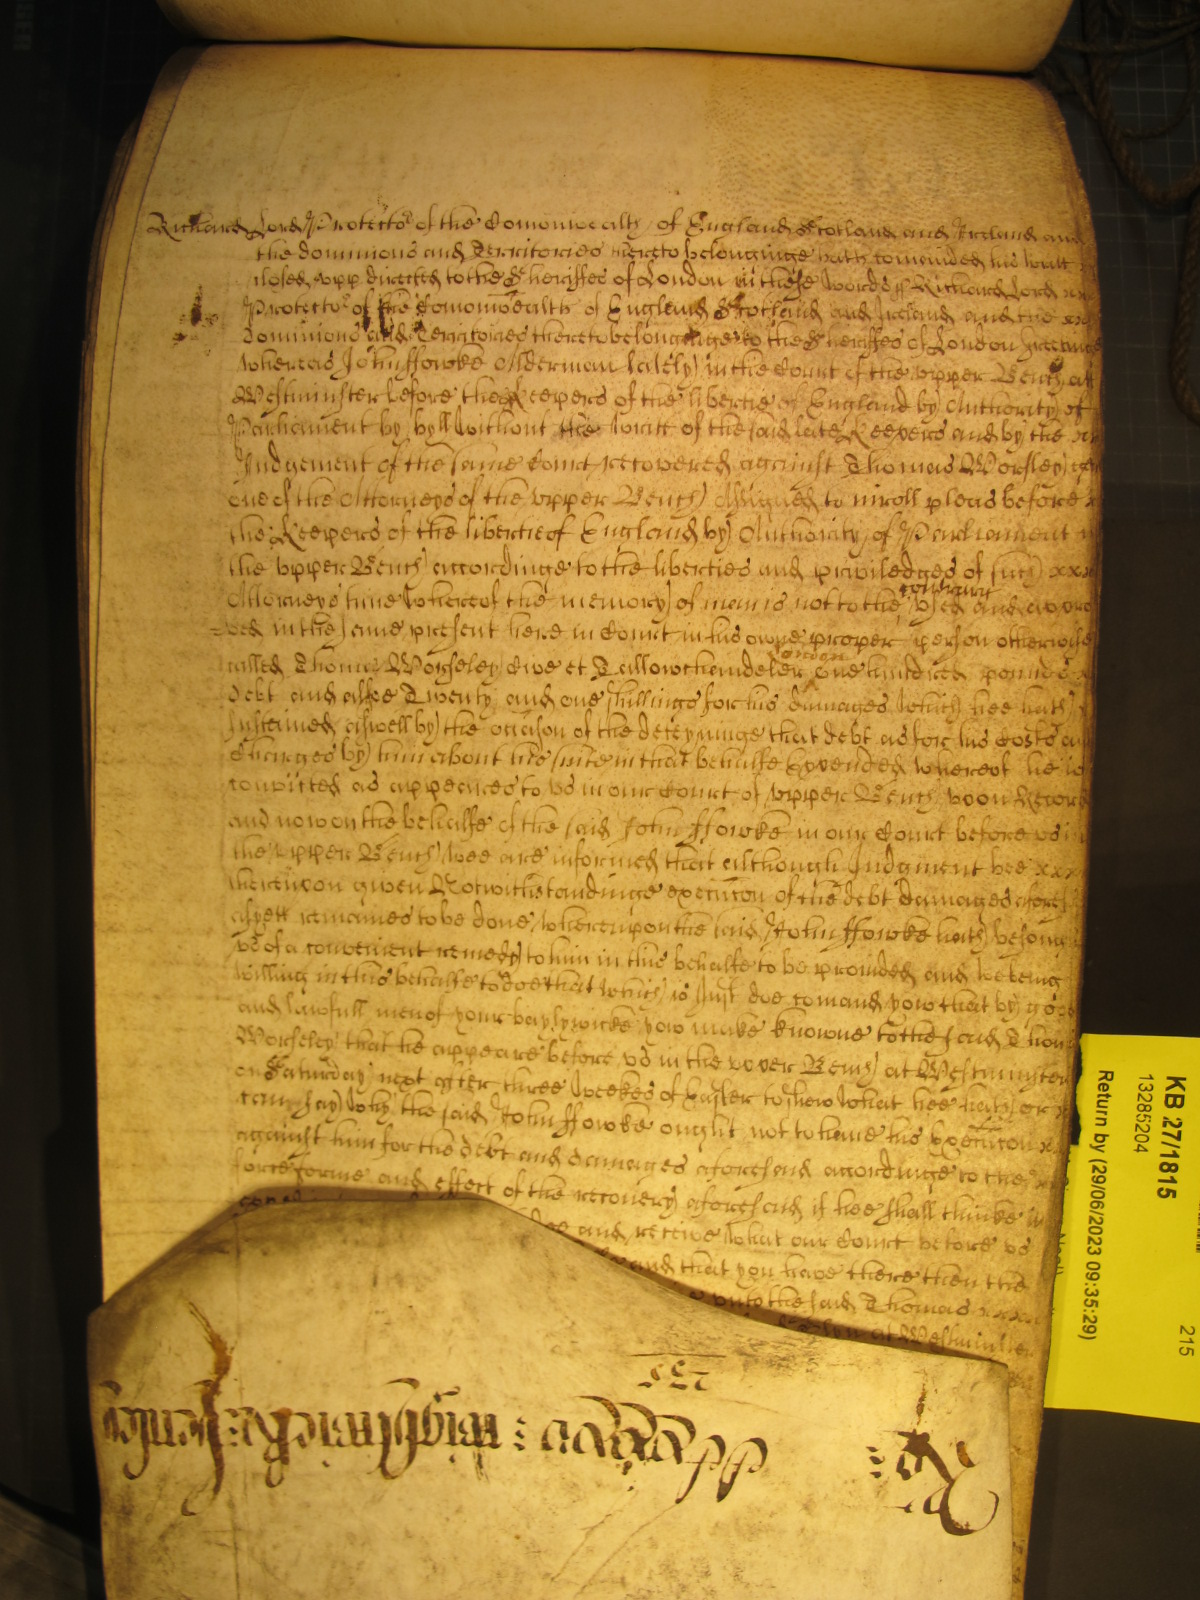 Richard Lord Protector of the Comonwealth of England Scotland and Ireland and
the dominions and Territories thereto belonginge hath comended his writt
closed upp directed to the Sheriffes of London in these words Richard Lord xx
Protector of the Comonwealth of England Scotland and Ireland and the xx
dominions and Territories thereto belonginge to the Sheriffes of London greetinge
Whereas John ffowke Alderman lately in the Court of the upper Bench att
Westminster before the Keepers of the libertie of England by Authority of
Parliament by byll without the writt of the said late Keepers and by the xx
Judgement of the same Court recovered against Thomas Worsley gent
one of the Attorneys of the upper Bench Assigned to inroll pleas before x
the Keepers of the libertie of England by Authority of Parliament
the upper Bench accordinge to the liberties and priviledges of such xxx
contrary
Attorneys time whereof the memory of man is not to the used and appro
ved in the same present here in Court in his owne proper person otherwise
London
called Thomas Worseley Cive et Tallowchandeler one hundred pounds
debt and alsoe Twenty and one shillings for his damages which hee hath
sustained aswell by the occasion of the deteyninge that debt as for his Costs an
Charges by him about his suite in that behalfe Expended whereof he is
convicted as appeares to us in our Court of upper Bench upon Record
and now on the behalfe of the said John ffowke in our Court before us
the upper Bench wee are informed that although Judgment bee xxx
thereupon given Notwithstandinge execution of the debt damages afores
as yett remaines to be done whereupon the said John ffowke hath besoug
us of a convenient remedy to him in this behalfe to be provided and we being
willing in this behalfe to doe that which is Just doe comand yow that by good
and lawfull men of your baylywicke yow make knowne to the said Thom
Worseley that he appeare before us in the upper Bench at Westminster
on Saturday next after three weekes of Easter to shew what hee hath or
cann say why the said John ffowke ought not to have his Execution x
against him for the debt and damages aforesaid accordinge to the
force forme and effect of the recovery aforesaid if hee shall thinke
and receive what our Court before us
and that you have there then the
unto the said Thomas xxx
at Westminster
KB 27/1815
13285204
Return by (29/06/2023 09:35:29)
215